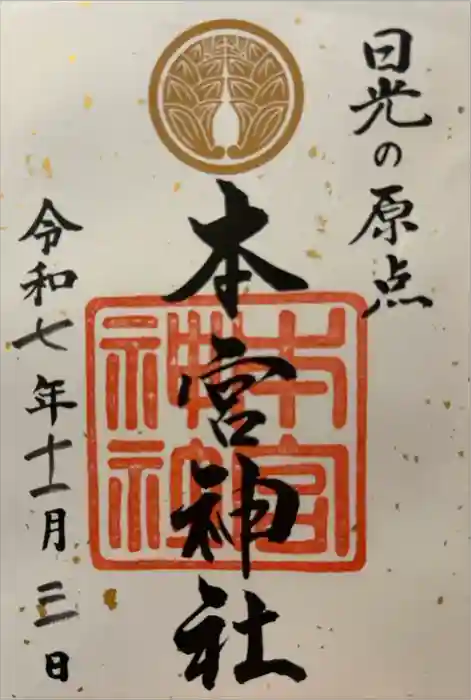 日光の原点
本宮神社
本宮
神社
令和七年十一月三日